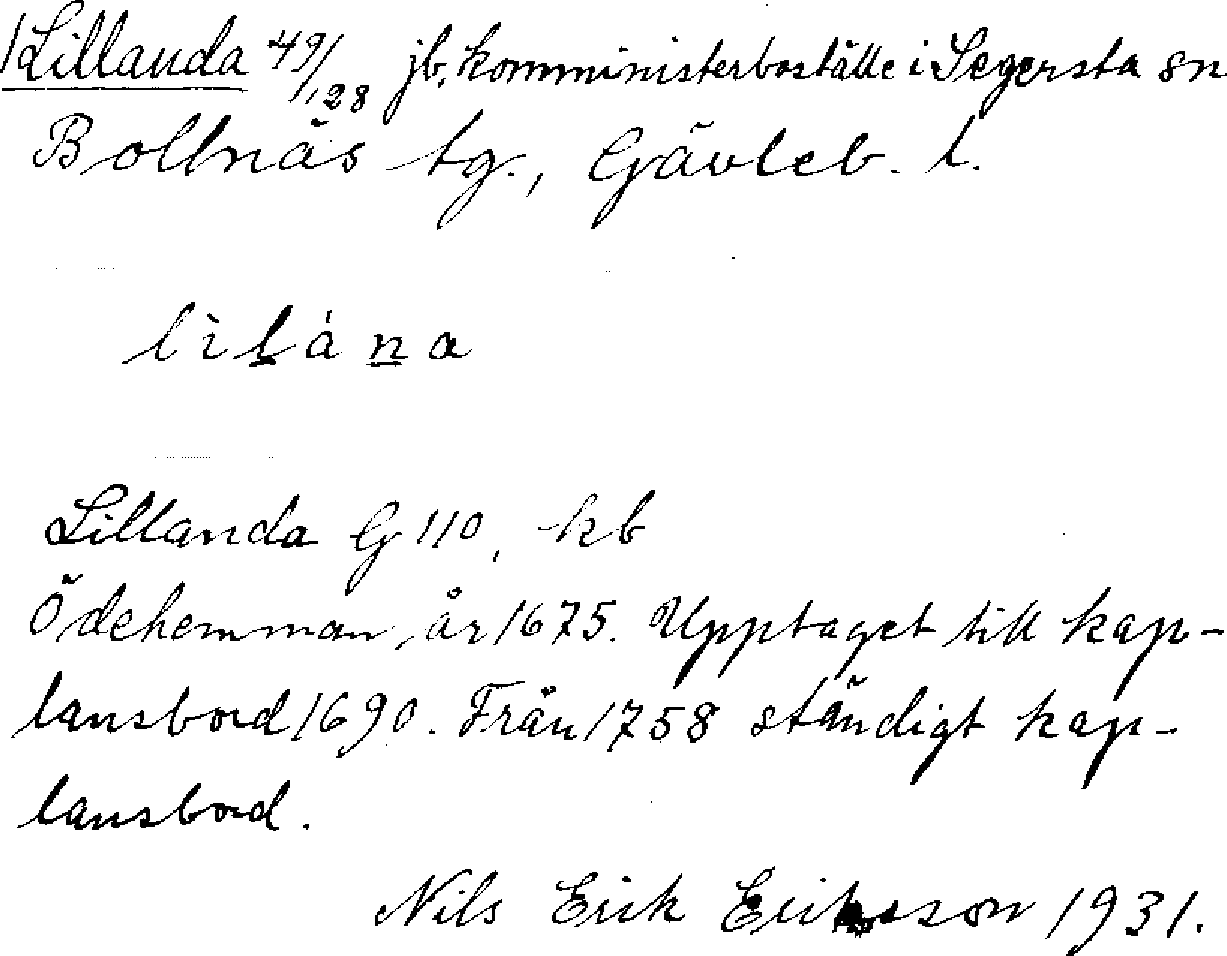 Lillanda 49/128 jb, komministerboställe i Segersta sn
Bollnäs tg., Gävleb. l.
lìlána
Lillanda G 110, kb
Ödehemman, år 1675. Upptaget till kap-
lansbord 1690. Från 1758 ständigt kap-
lansbord.
Nils Erik Eriksson 1931.